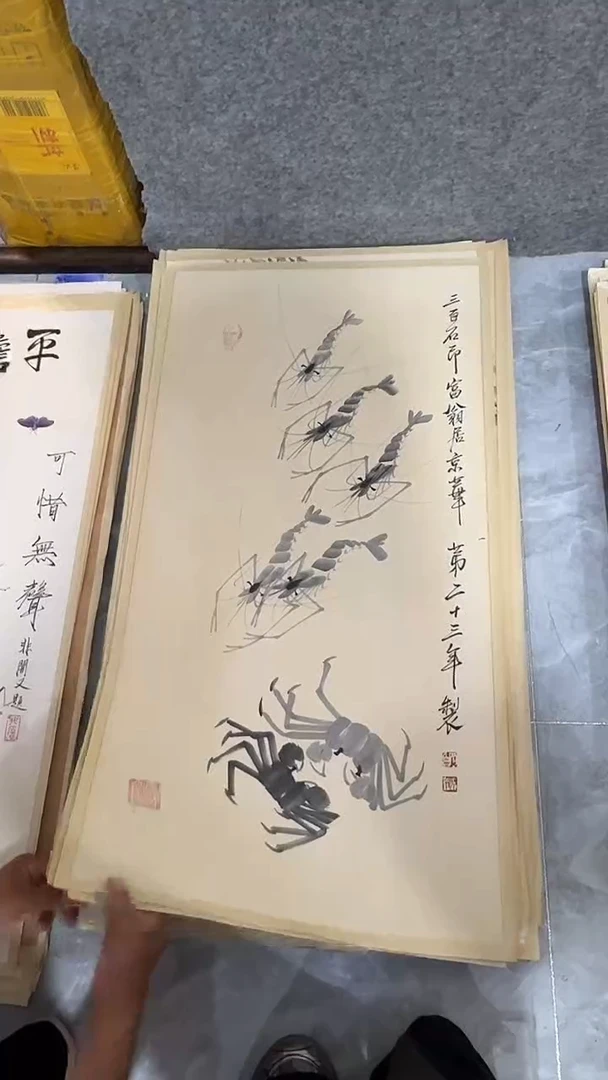 三百石印富翁居京華
第二十三年製
平
可惜無聲
非闇又題